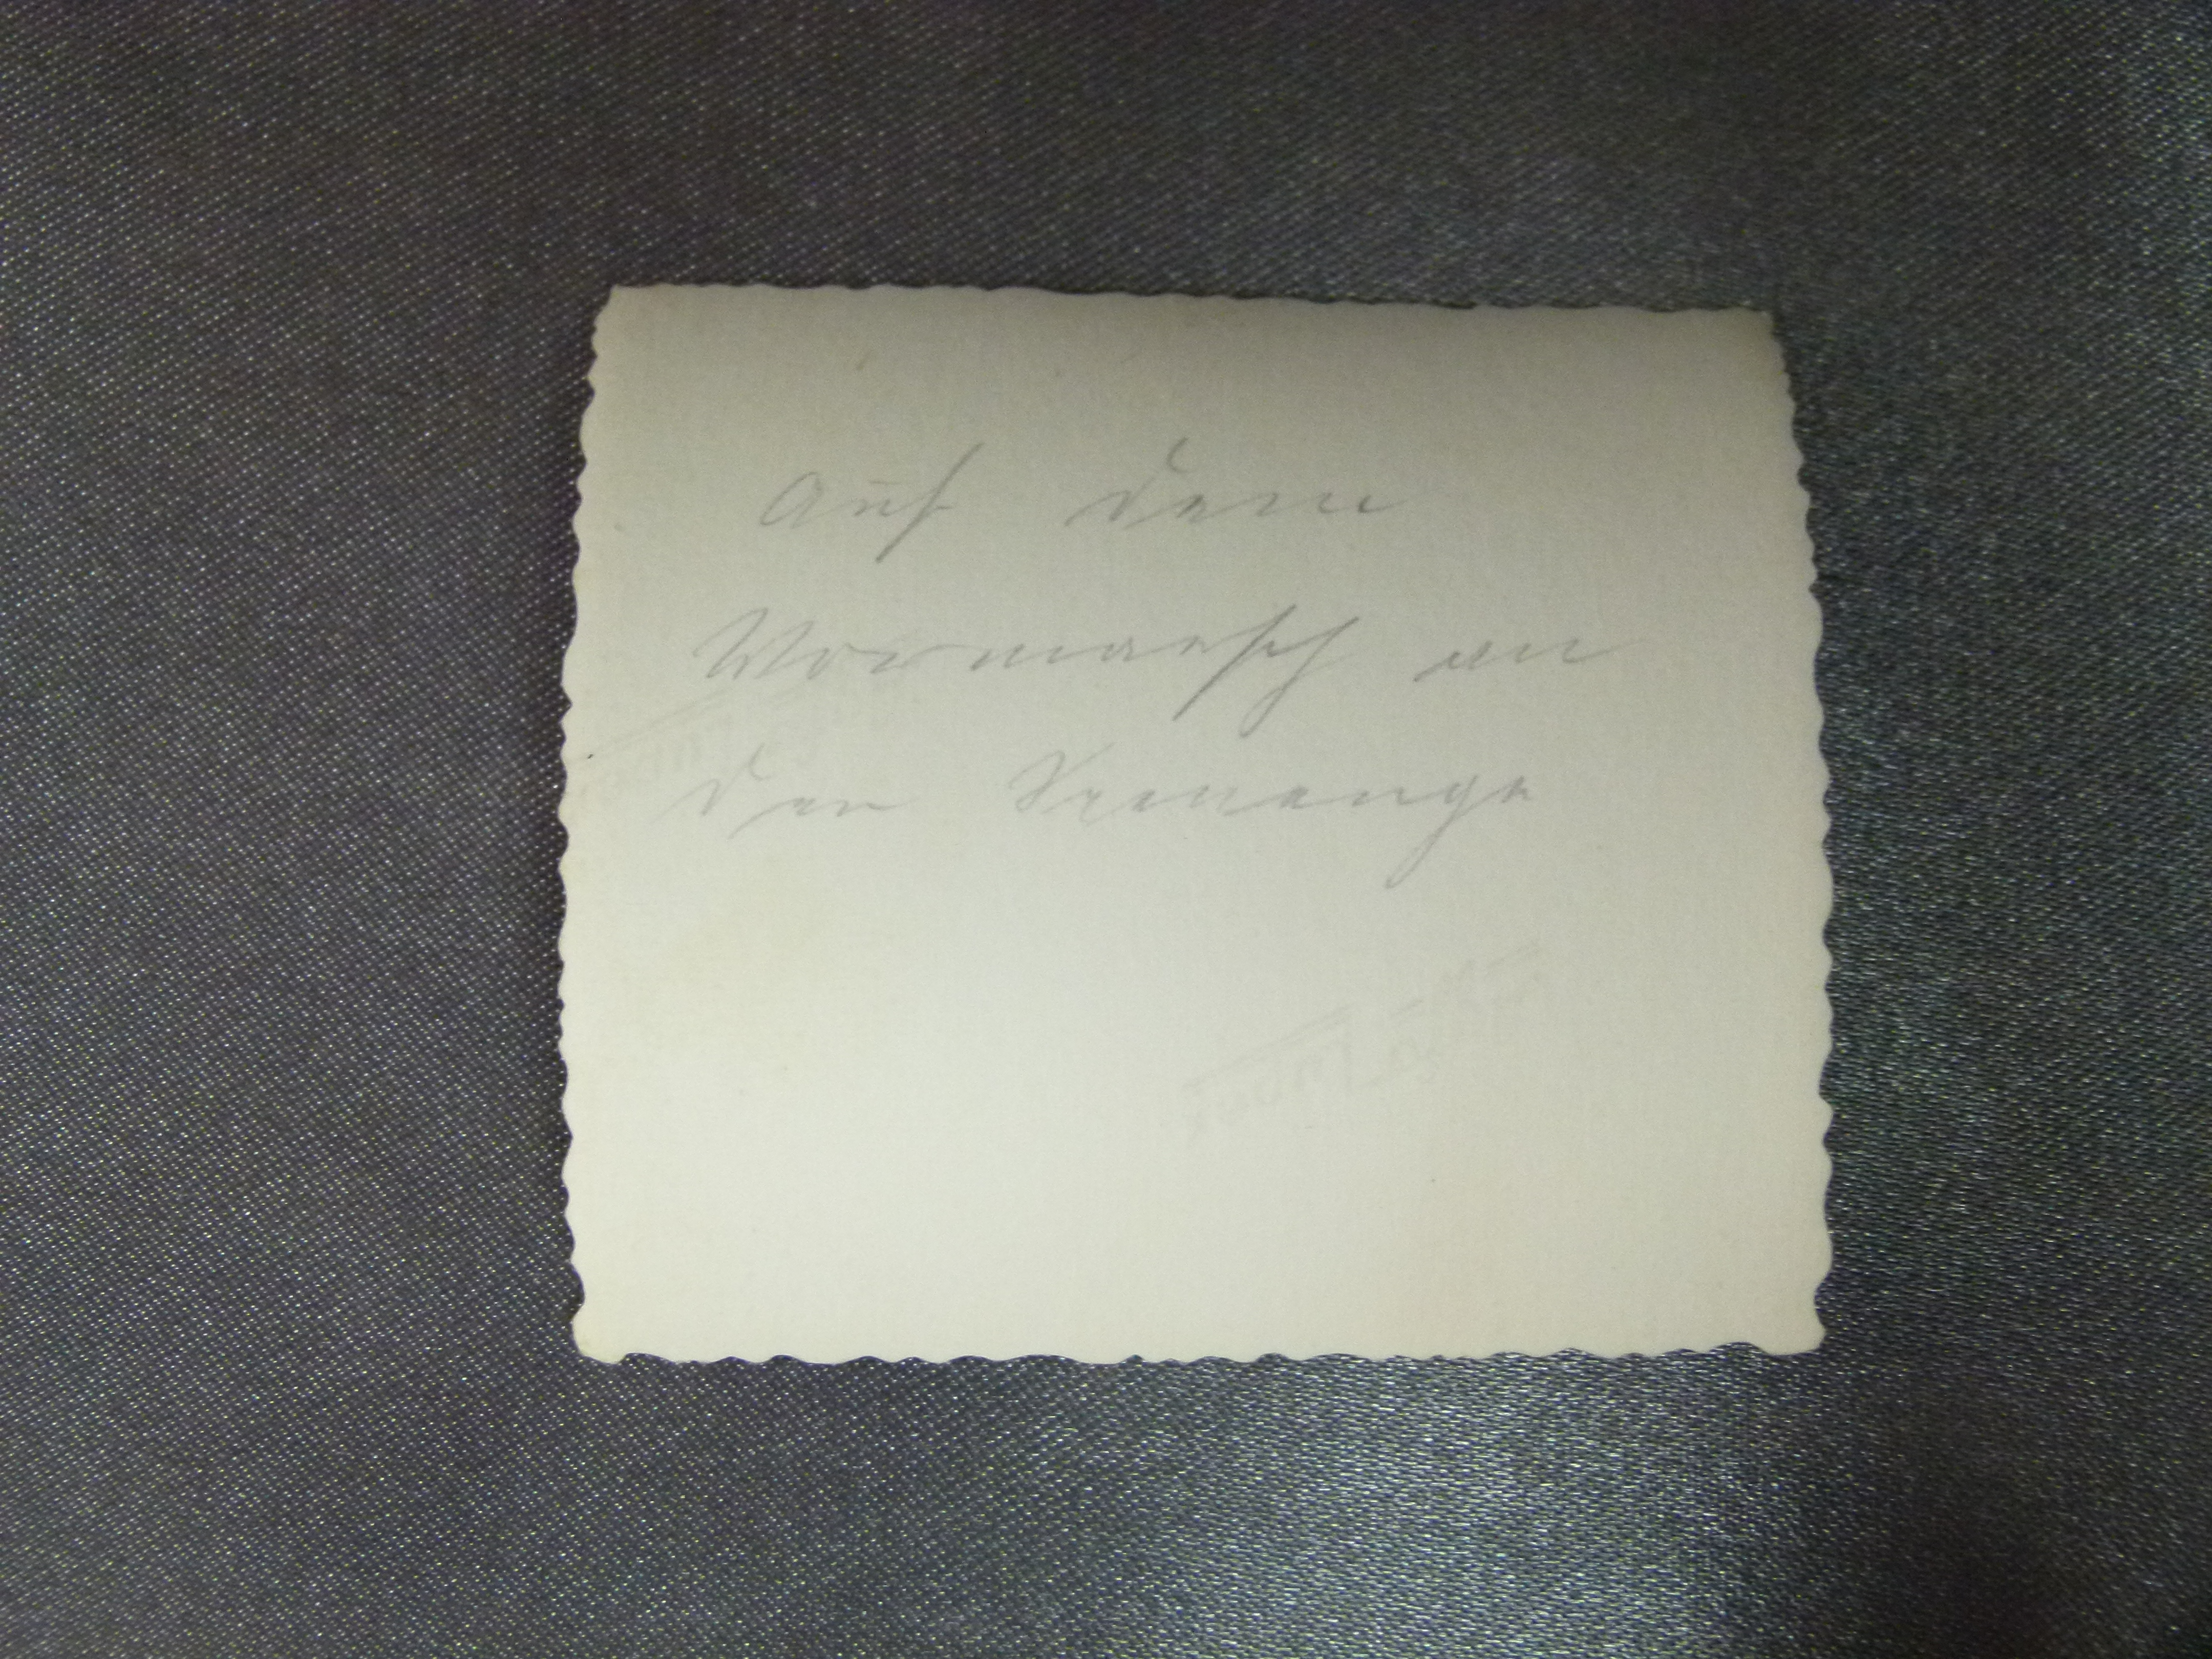 Auf dem
Vormarsch an
der